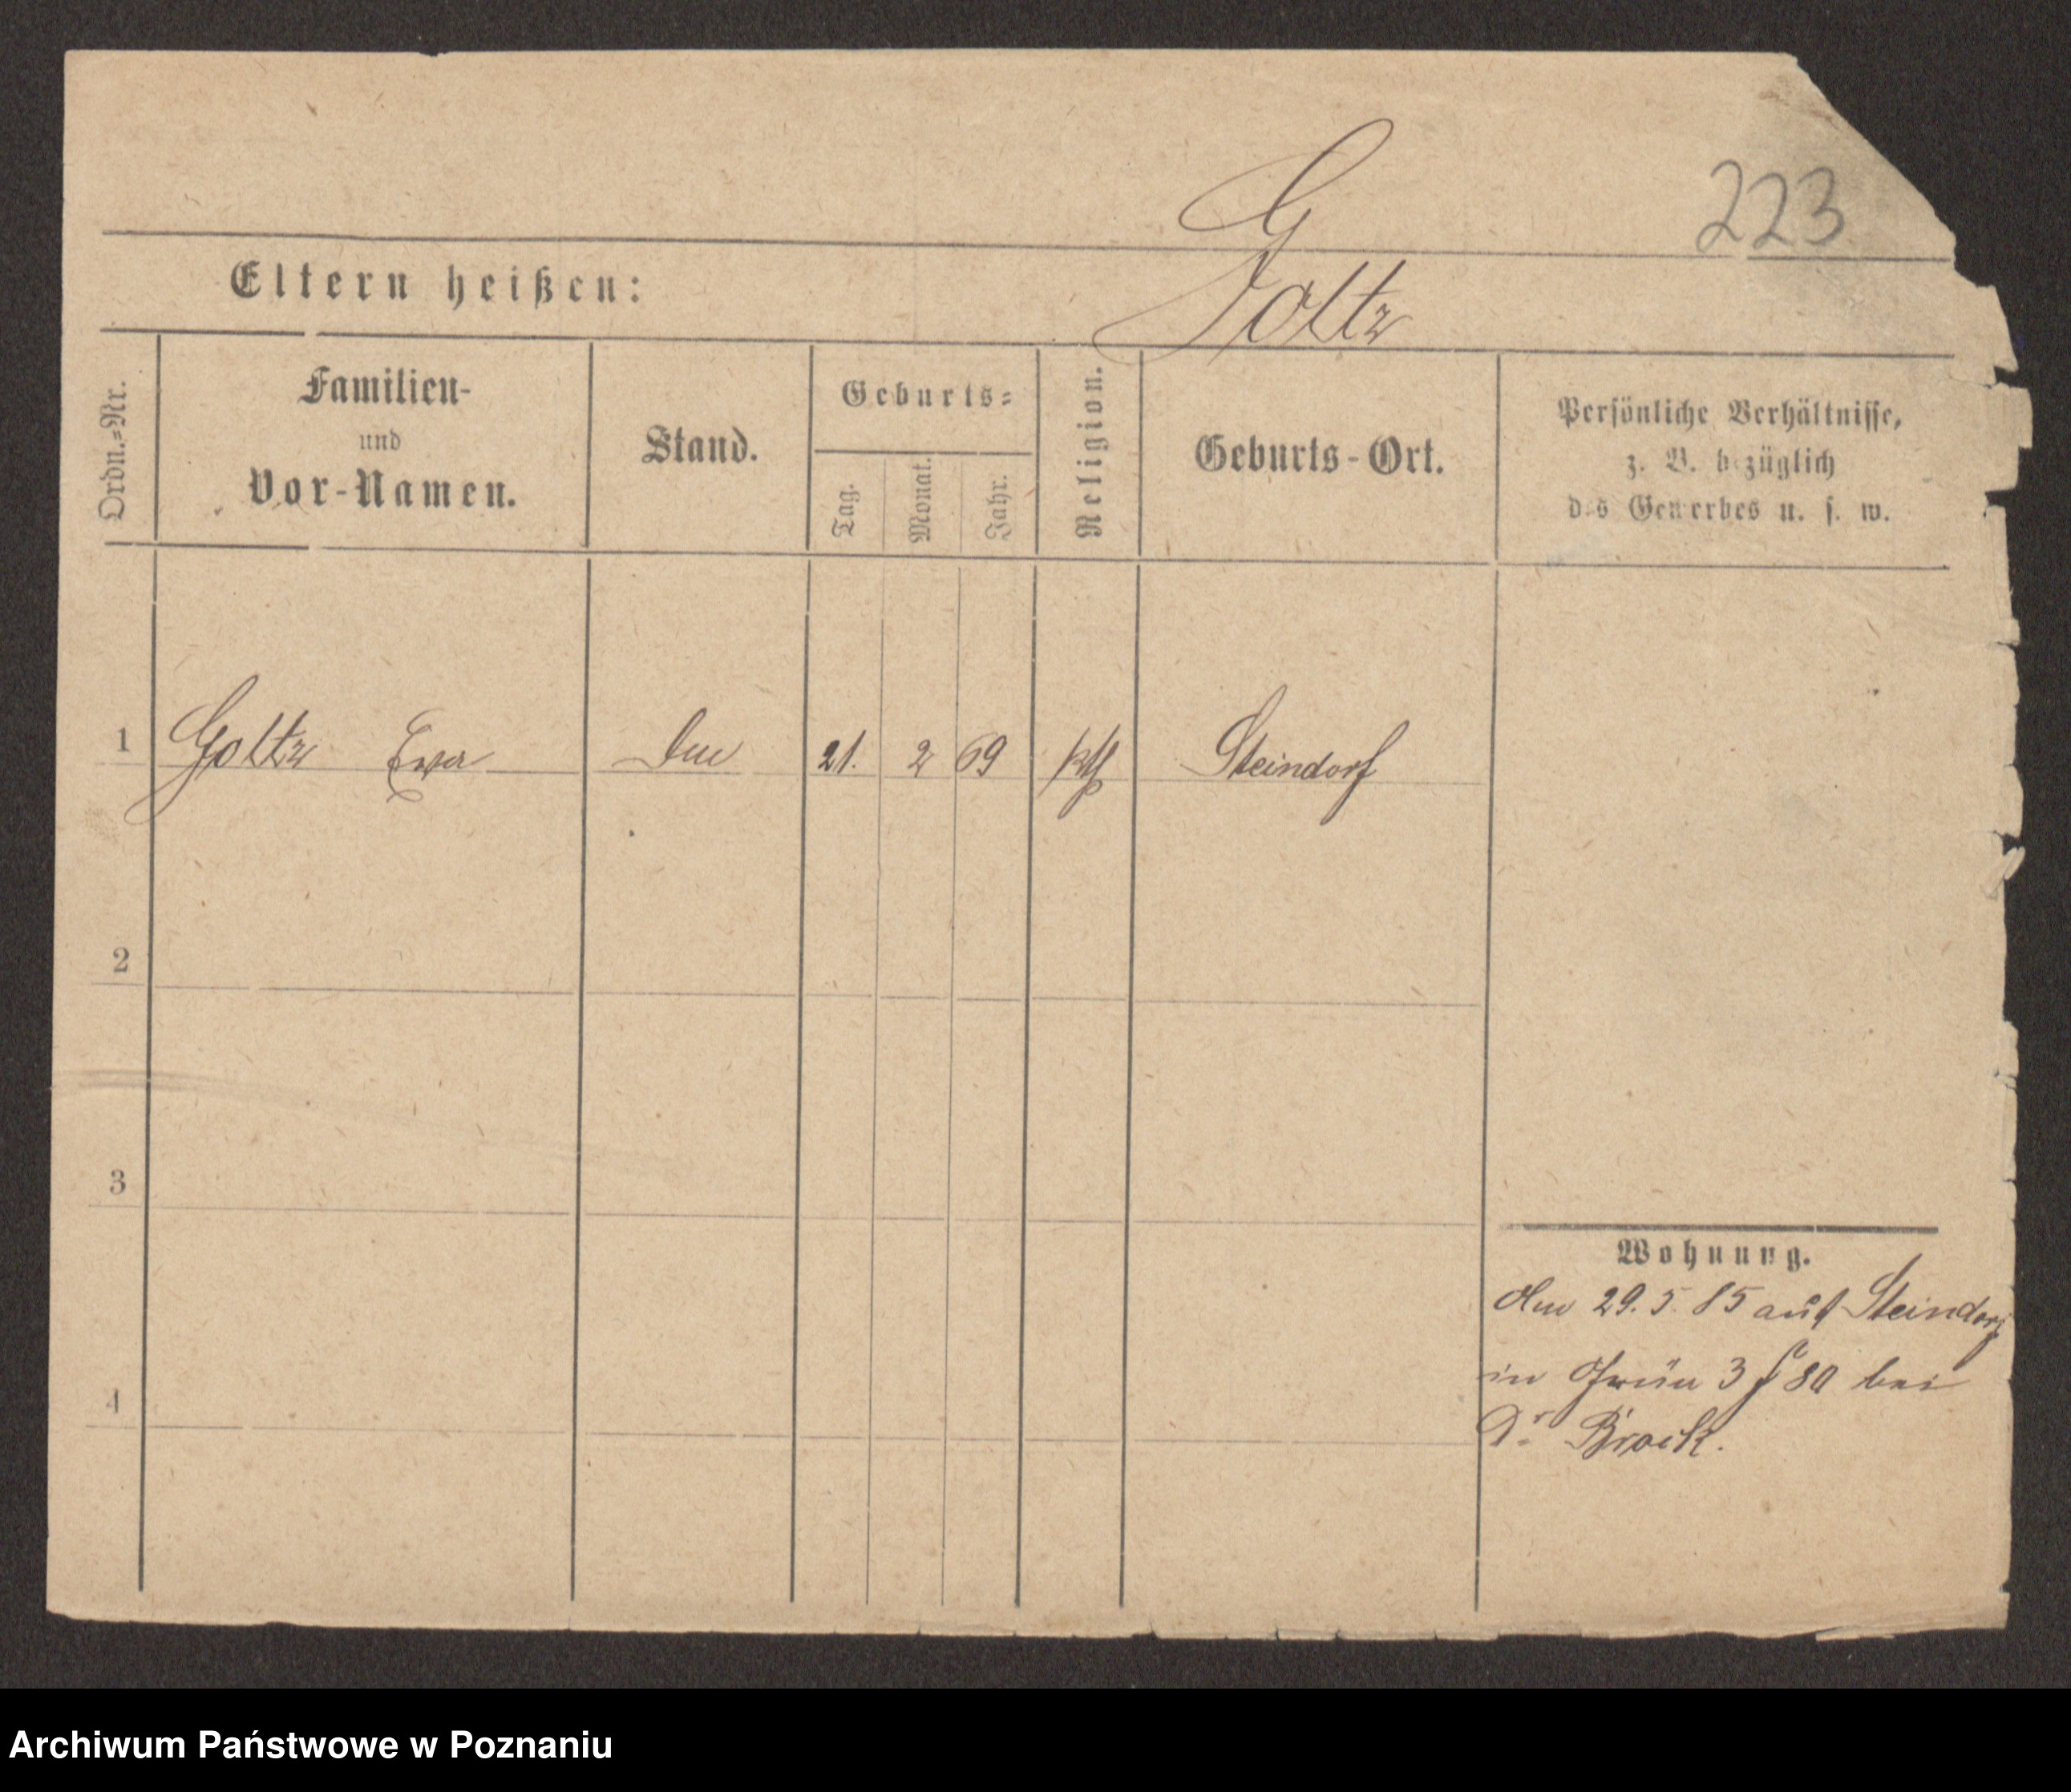 G
223
Eltern heißen:
Goltz
Ordn.-Nr.
Familien-
und
Vor-Namen.
Stand.
Geburts-
Tag.
Monat.
Jahr.
Religion.
Geburts-Ort.
Persönliche Verhältnisse,
z. B. bezüglich
des Gewerbes u. s. w.
1 Goltz Ewa 21. 2 69 kth Steindorf
2
3
Wohnung.
29. 5. 85 auf Steindorf
4
in Grün 3 f 80 bei
Dr. Brock.
Archiwum Państwowe w Poznaniu